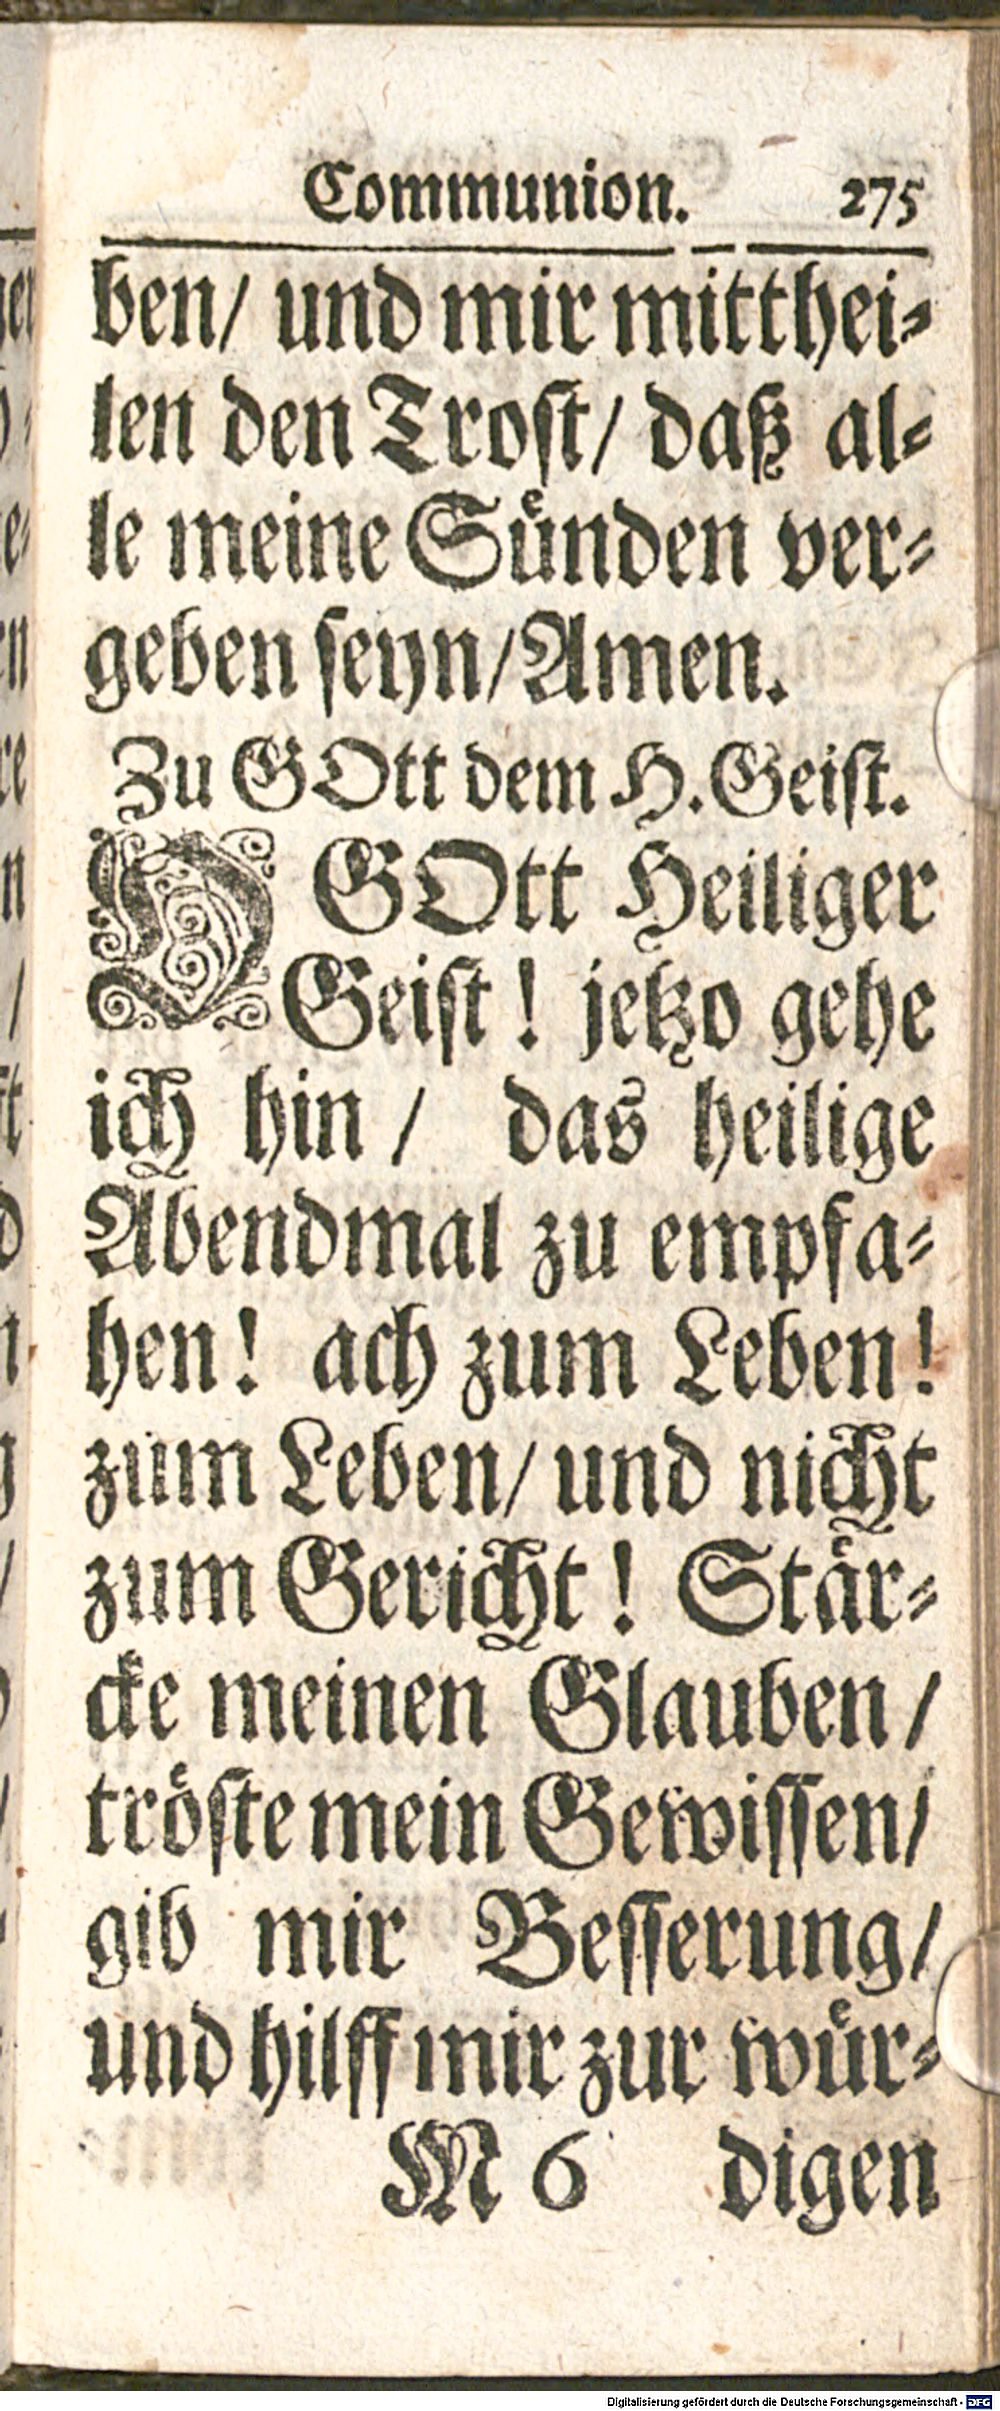 Communion. 275
ben/ und mir mitthei⸗
len den Troſt/ daß al⸗
le meine Suͤnden ver⸗
geben ſeyn/ Amen.
Zu GOtt dem H. Geiſt.
O GOtt Heiliger
Geiſt! jetzo gehe
ich hin/ das heilige
Abendmal zu empfa⸗
hen! ach zum Leben!
zum Leben/ und nicht
zum Gericht! Staͤr⸗
cke meinen Glauben/
troͤſte mein Gewiſſen/
gib mir Beſſerung/
und hilff mir zur wuͤr⸗
M 6 digen
Digitalisierung gefördert durch die Deutsche Forschungsgemeinschaft - DFG